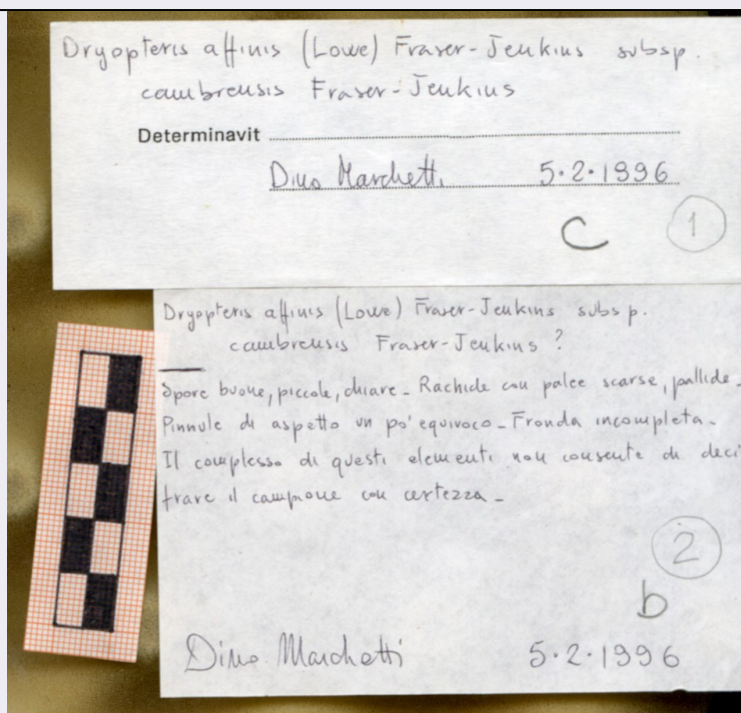 Dryopteris affinis (Lowe) Fraser-Jenkins subsp.
cambrensis Fraser-Jenkins
Determinavit
Dino Marchetti 5.2.1996
C 1
Dryopteris affinis (Lowe) Fraser-Jenkins subsp.
cambrensis Fraser-Jenkins ?
Spore buone, piccole, chiare - Rachide con palee scarse, pallide -
Pinnule di aspetto un po' equivoco - Fronda incompleta -
Il complesso di questi elementi non consente di deci
frare il campione con certezza -
2
b
Dino Marchetti 5.2.1996